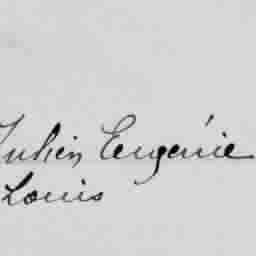 Julien Eugénie
Louis